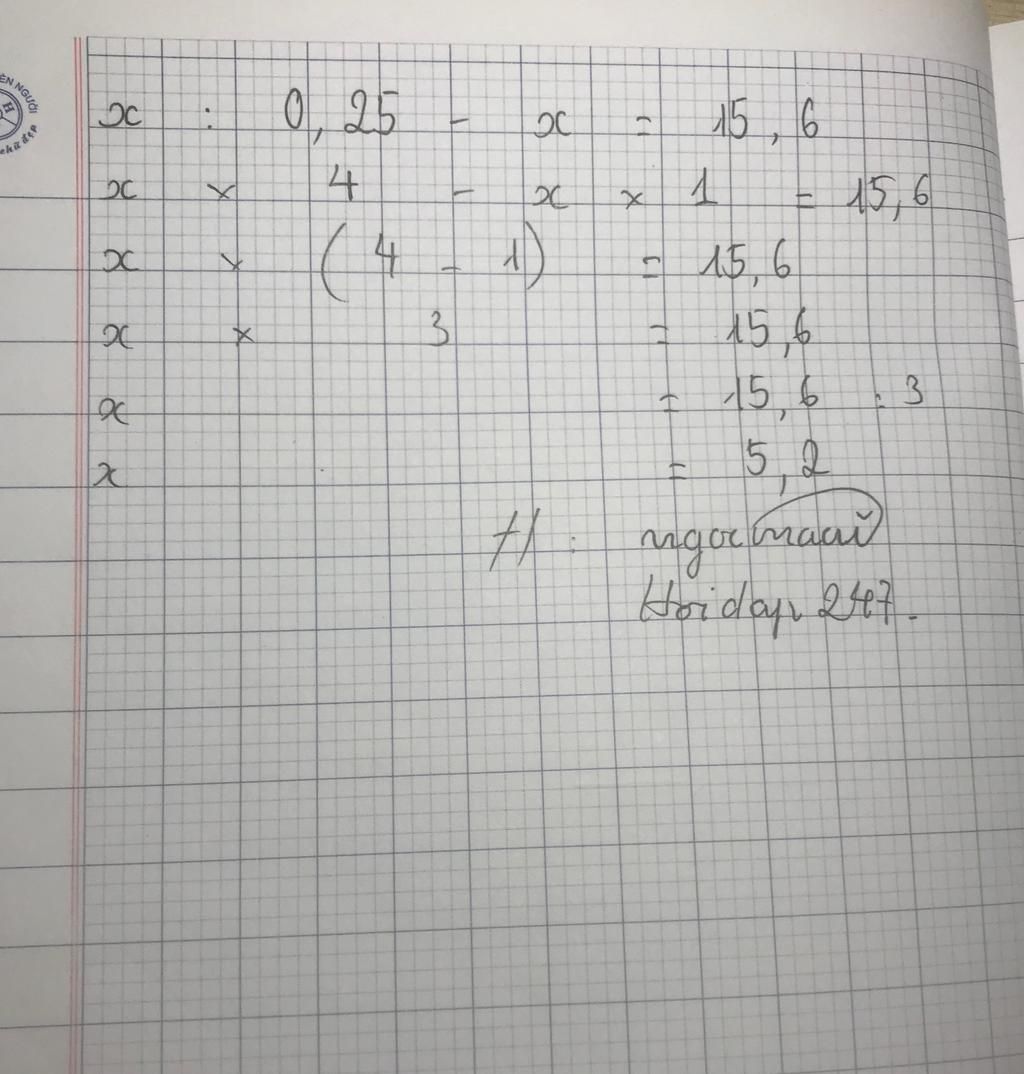 ÊN NGƯỜI
H
chữ đẹp
x : 0,25 - x = 15,6
x × 4 - x × 1 = 15,6
x × (4 - 1) = 15,6
x × 3 = 15,6
x = 15,6 : 3
x = 5,2
Hoidap 247.